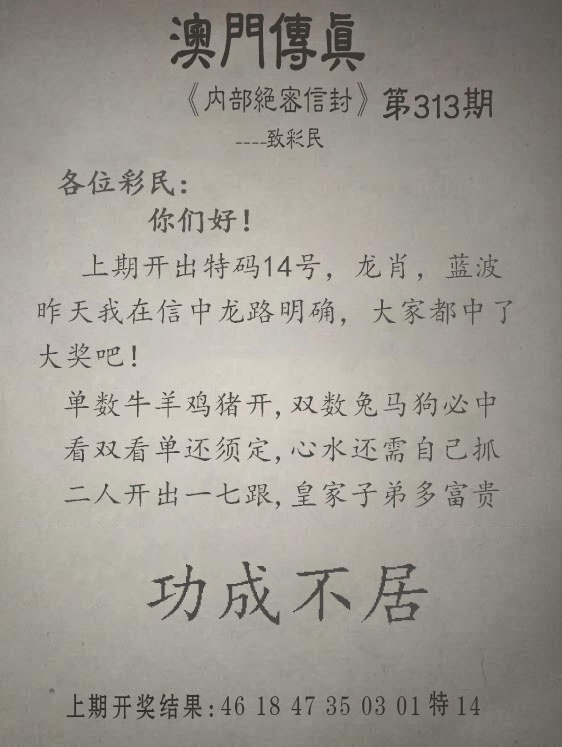 澳門傳眞
《内部絕密信封》第313期
----致彩民
各位彩民:
你们好!
上期开出特码14号，龙肖，蓝波
昨天我在信中龙路明确，大家都中了
大奖吧!
单数牛羊鸡猪开,双数兔马狗必中
看双看单还须定,心水还需自己抓
二人开出一七跟,皇家子弟多富贵
功成不居
上期开奖结果:46 18 47 35 03 01 特 14